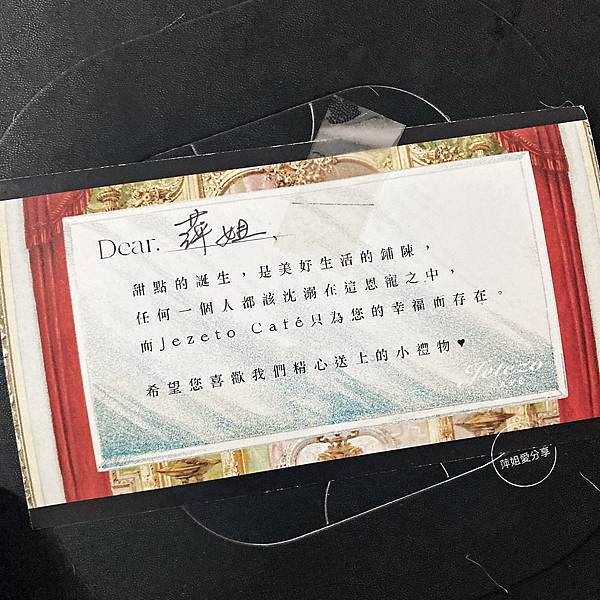 Dear. 萍姐
甜點的誕生，是美好生活的鋪陳，
任何一個人都該沈溺在這恩寵之中，
而Jezeto Café只為您的幸福而存在。
希望您喜歡我們精心送上的小禮物♥
萍姐愛分享